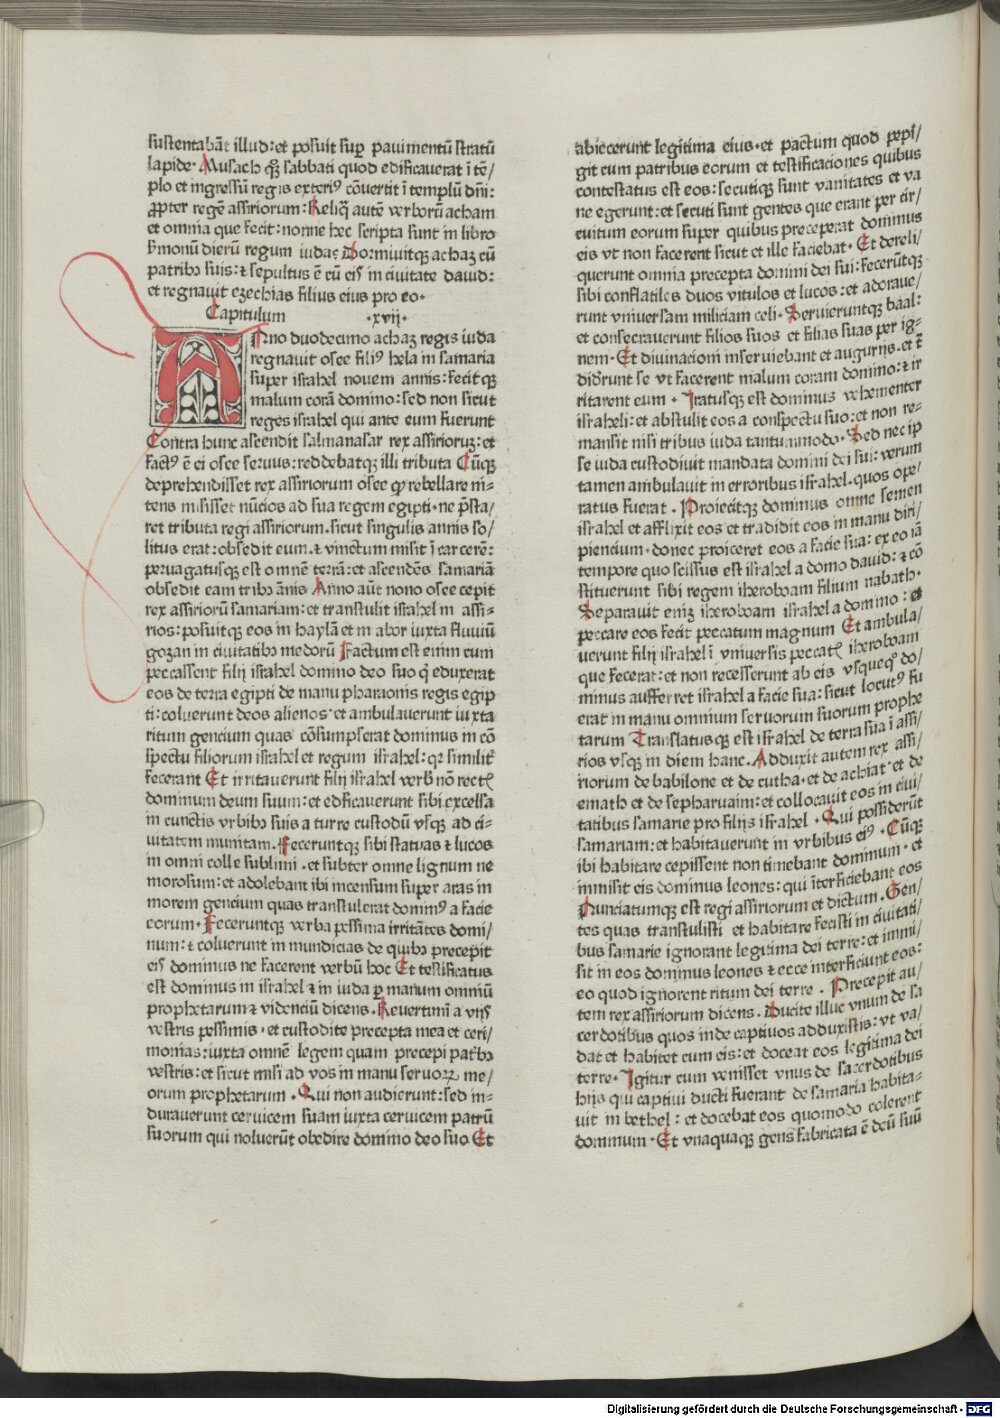 sustentabāt illud: et posuit sup̄ pavimentū stratū
lapide· Musach qꝫ sabbati quod edificauerat ī tē/
plo et ingressū regis exteriꝰ cōuertit ī templū dn̄i:
ꝓpter regē assiriorum: Reliq̄ autē verborū acham
et omnia que fecit: nonne hec scripta sunt in libro
ẜmonū dierū regum iudae Dormiuitqꝫ achaz cū
patribꝫ suis: ⁊ sepultus ē cū eis in ciuitate dauid:
et regnauit ezechias filius eius pro eo·
Capitulum ·xvij·
ANno duodecimo achaz regis iuda
regnauit osee filiꝰ hela in samaria
super israhel nouem annis: fecitqꝫ
malum corā domino: sed non sicut
reges israhel qui ante eum fuerunt
Contra hunc ascendit salmanasar rex assirioruꝫ: et
factꝰ ē ei osee seruus: reddebatqꝫ illi tributa Cūqꝫ
deprehendisset rex assiriorum osee ꝙ rebellare ni-
tens misisset nūcios ad sua regem egipti· ne p̄sta/
ret tributa regi assiriorum· sicut singulis annis so/
litus erat: obsedit eum· ⁊ vinctum misit ī carcerē:
peruagatusqꝫ est omnē terrā: et ascendēs samariā
obsedit eam tribꝫ ānis Anno aūt nono osee cepit
rex assiriorū samariam: et transtulit israhel in assi-
rios: posuitqꝫ eos in haylā et in abor iuxta fluuiū
gozan in ciuitatibꝫ medorū Factum est enim cum
peccassent filij israhel domino deo suo q̄ eduxerat
eos de terra egipti de manu pharaonis regis egip
ti: coluerunt deos alienos· et ambulauerunt iuxta
ritum gencium quas cōsumpserat dominus in cō
spectu filiorum israhel et regum israhel: qꝛ similit̄
fecerant Et irritauerunt filij israhel verb̄ nō rect̄
dominum deum suum: et edificauerunt sibi excelsa
in cunctis vrbibꝫ suis a turre custodū vsqꝫ ad ci-
uitatem munitam. Feceruntqꝫ sibi statuas ⁊ lucos
in omni colle sublimi · et subter omne lignum ne
morosum: et adolebant ibi incensum super aras in
morem gencium quas transtulerat dominꝰ a facie
eorum· Feceruntqꝫ verba pessima irritātes domi/
num: ⁊ coluerunt in mundicias de quibꝫ precepit
eis dominus ne facerent verbū hoc Et testificatus
est dominus in israhel ⁊ in iuda ꝑ manum omniū
prophetarum ⁊ videnciū dicens· Reuertimī a vijs
vestris pessimis · et custodite precepta mea et ceri/
monias: iuxta omnē legem quam precepi patribꝫ
vestris: et sicut misi ad vos in manu seruoꝝ me/
orum prophetarum · Qui non audierunt: sed in-
durauerunt ceruicem suam iuxta ceruicem patrū
suorum qui noluerūt obedire domino deo suo Et
abiecerunt legitima eius· et pactum quod pepi/
git cum patribus eorum et testificaciones quibus
contestatus est eos: secutiqꝫ sunt vanitates et va
ne egerunt: et secuti sunt gentes que erant per cir/
cuitum eorum super quibus preceperat dominus
eis vt non facerent sicut et ille faciebat· Et dereli/
querunt omnia precepta domini dei sui: fecerūtqꝫ
sibi conflatiles duos vitulos et lucos: et adoraue/
runt vniuersam miliciam celi· Servieruntqꝫ baal:
et consecrauerunt filios suos et filias suas per ig-
nem· Et diuinacioni inseruiebant et augurijs· et t̄
diderunt se vt facerent malum coram domino: ⁊ ir
ritarent eum · Iratusqꝫ est dominus vehementer
israheli: et abstulit eos a conspectu suo: et non re-
mansit nisi tribus iuda tantummodo· Sed nec ip
se iuda custodiuit mandata domini dei sui: verum
tamen ambulauit in erroribus israhel· quos ope/
ratus fuerat · Proiecitqꝫ dominus omne semen
israhel et afflixit eos et tradidit eos in manu diri/
piencium· donec proiceret eos a facie sua: ex eo iā
tempore quo scissus est israhel a domo dauid: ⁊ cō
stituerunt sibi regem iheroboam filium nabath·
Separauit enīꝫ iheroboam israhel a domino : et
peccare eos fecit peccatum magnum Et ambula/
uerunt filij israhel ī vniuersis peccatꝭ iheroboam
que fecerat: et non recesserunt ab eis vsquequo do/
minus aufferret israhel a facie sua: sicut locutꝰ fu
erat in manu omnium seruorum suorum prophe
tarum Translatusqꝫ est israhel de terra sua ī assi/
rios vsqꝫ in diem hanc· Adduxit autem rex assi/
riorum de babilone et de cutha· et de achiat· et de
emath et de sepharuaim: et collocauit eos in ciui/
tatibus samarie pro filijs israhel · Qui possiderūt
samariam: et habitauerunt in vrbibus eiꝰ · Cūqꝫ
ibi habitare cepissent non timebant dominum · et
immisit eis dominus leones: qui īterficiebant eos
Nunciatumqꝫ est regi assiriorum et dictum· Gen/
tes quas transtulisti et habitare fecisti in ciuitati/
bus samarie ignorant legitima dei terre: et immi/
sit in eos dominus leones ⁊ ecce interficiunt eos:
eo quod ignorent ritum dei terre · Precepit au/
tem rex assiriorum dicens· Ducite illuc vnum de sa
cerdotibus quos inde captiuos adduxistis: vt va/
dat et habitet cum eis: et doceat eos legitima dei
terre· Igitur cum venisset vnus de sacerdotibus
hijs qui captiui ducti fuerant de samaria habita-
uit in bethel : et docebat eos quomodo colerent
dominum · Et vnaquaqꝫ gens fabricata ē deū suū
Digitalisierung gefördert durch die Deutsche Forschungsgemeinschaft - DFG